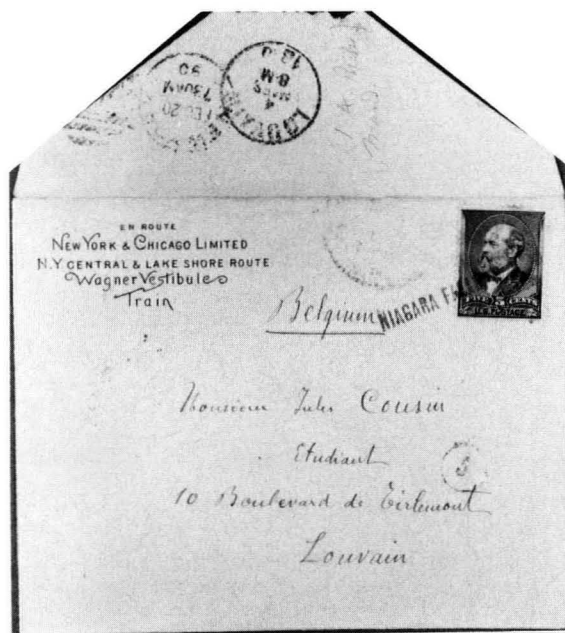 LOUVAIN
4
MARS
8-M
1890
FEB 20
730AM
90
EN ROUTE
NEW YORK & CHICAGO LIMITED
N.Y CENTRAL & LAKE SHORE ROUTE
Wagner Vestibule
Train
Belgium
NIAGARA
Monsieur Jules Cousin
Etudiant
10 Boulevard de Tirlemont
Louvain